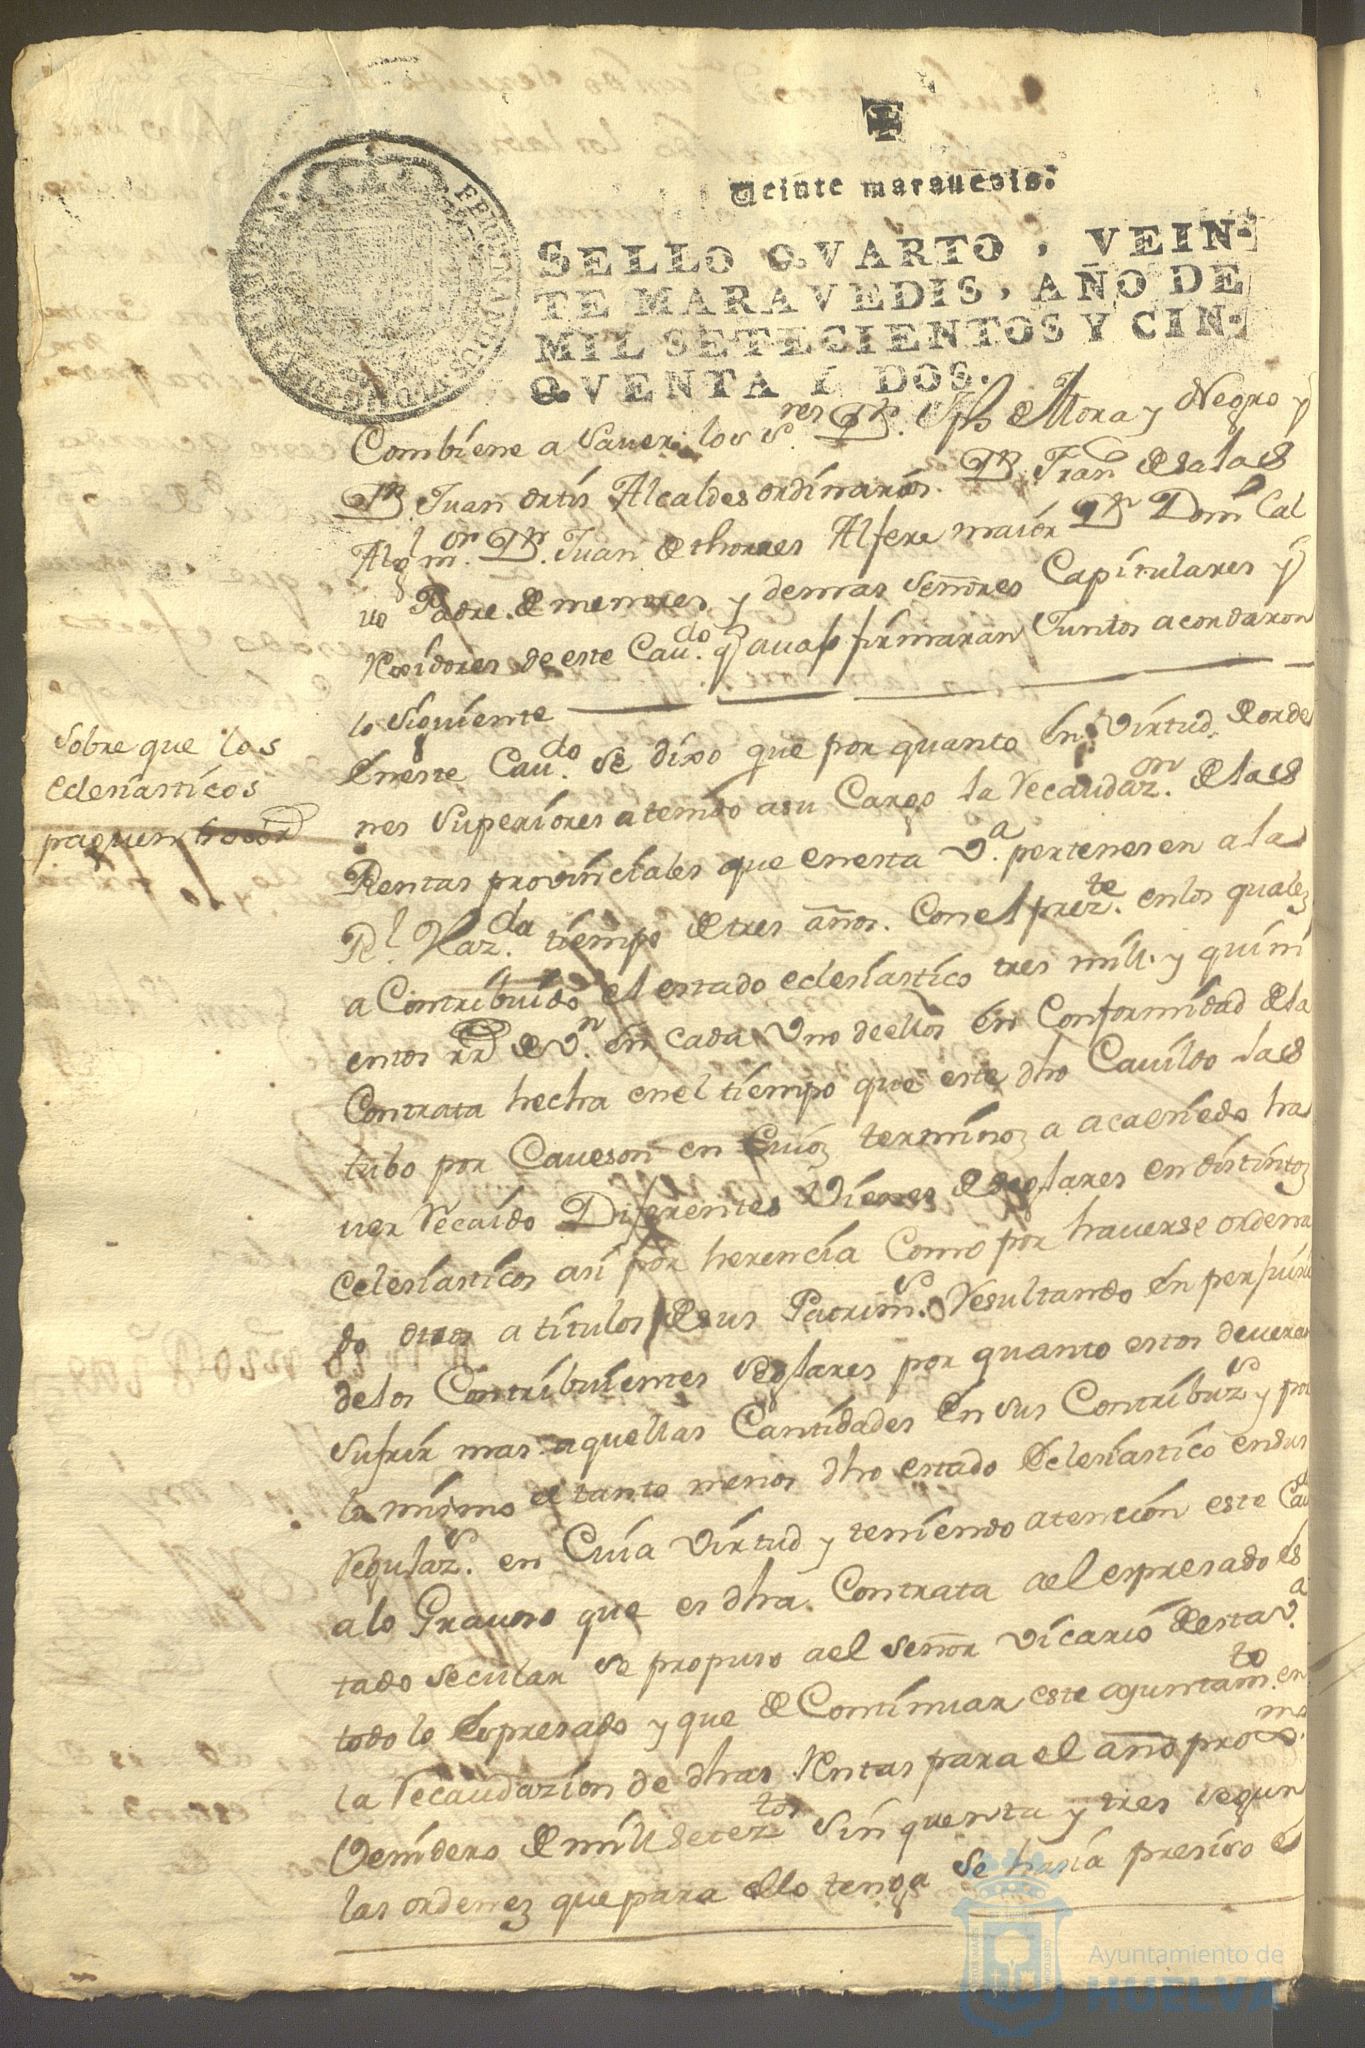 Veinte marauedis.
SELLO QVARTO, VEIN-
TE MARAVEDIS, AÑO DE
MIL SETECIENTOS Y CIN-
QVENTA Y DOS.
Combiene a Sauer los S.res Dn. Jph de Mora y Negro y
Dn. Juan ortis Alcaldes ordinarios. Dn Fran.co de salas
Alg.l m.or Dn. Juan de thorres Alfere maior Dn Dom.o Cal
uo Padre de menores, y demas Señores Capitulares y
Rexidores de este Cau.do q auajo firmaran Juntos acordaron
lo siguiente
Sobre que los
eclesiasticos
paguen
Enerte Cau.do se dixo que por quanto en Virtud de orde
nes Superiores a tenido asu Cargo la Recaudaz.on de las
Rentas provinciales que enesta V.a pertenesen a la
R.l Haz.da tiempo de tres años. Con el prez.te enlos quales
a Contribuido el estado eclesiastico tres mill. y quini
entos rr de V.n en cada Uno deellos en Conformidad dela
Contrata hecha enel tiempo que este dho Cauildo las
tubo por Caueson en Cuios terminos a acaesido ha
uer Recaido Diferentes Vienes de seglares en distintos
eclesiasticos asi por herencia Como por hauerse ordena
do otros a titulos de sus Patrim.s Resultando en perjuici
delos Contribuientes Seglares por quanto estos deveran
Sufrir mas aquellas Cantidades En sus Contribuz.s y por
lo mismo el tanto menos dho estado Eclesiastico ensus
Regulaz.s en Cuia Virtud y teniendo atencion este Cau
alo Grauoso que es dha. Contrata ael espresado es
tado secular se propuso ael Señor Vicario de esta V.a
todo lo Espresado y que de Continuar este aguntam.to en
la Recaudazion de dhas Rentas para el año pro x.mo
Venidero de mill setez.tos sinquenta y tres segun
las ordenes que para ello tenga se haria presiso el
Ayuntamiento de
HUELVA